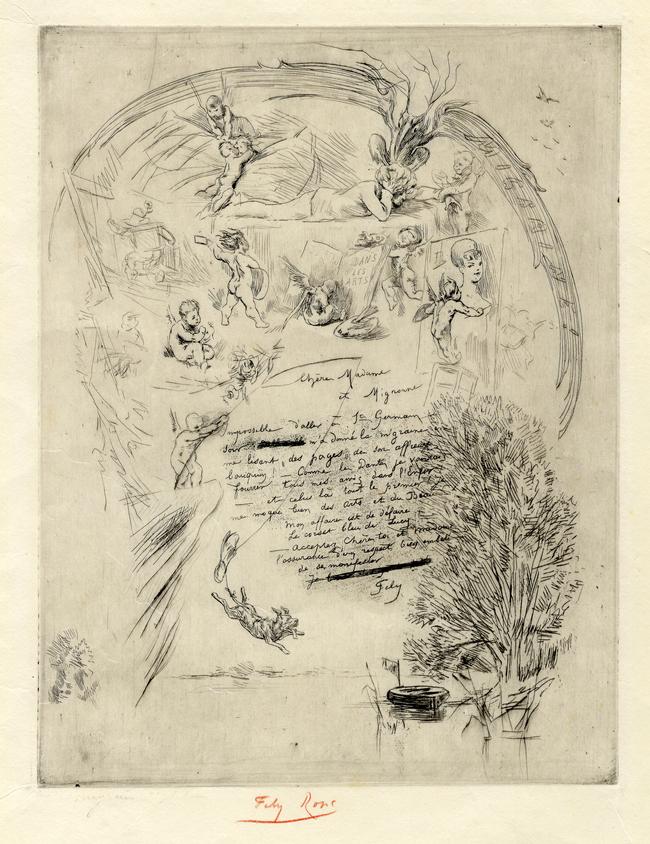 MIGRAINE!
DANS
LES
ARTS
Chère Madame
et Mignonne
Impossible d'aller à St Germain
soir m'a donné la migraine
me lisant des pages de son affreux
bouquin! — Comme le Dante, je voudrais
fourrer tous mes amis dans l'Enfer
— et celui là tout le premier. Je
me moque bien des arts et du Beau
Mon affaire est de défaire
Le corset bleu de Lucy! —
— Acceptez Chère toi et Madame
l'assurance d'un respect
de se manifester
Je
Fély
Fély Rops